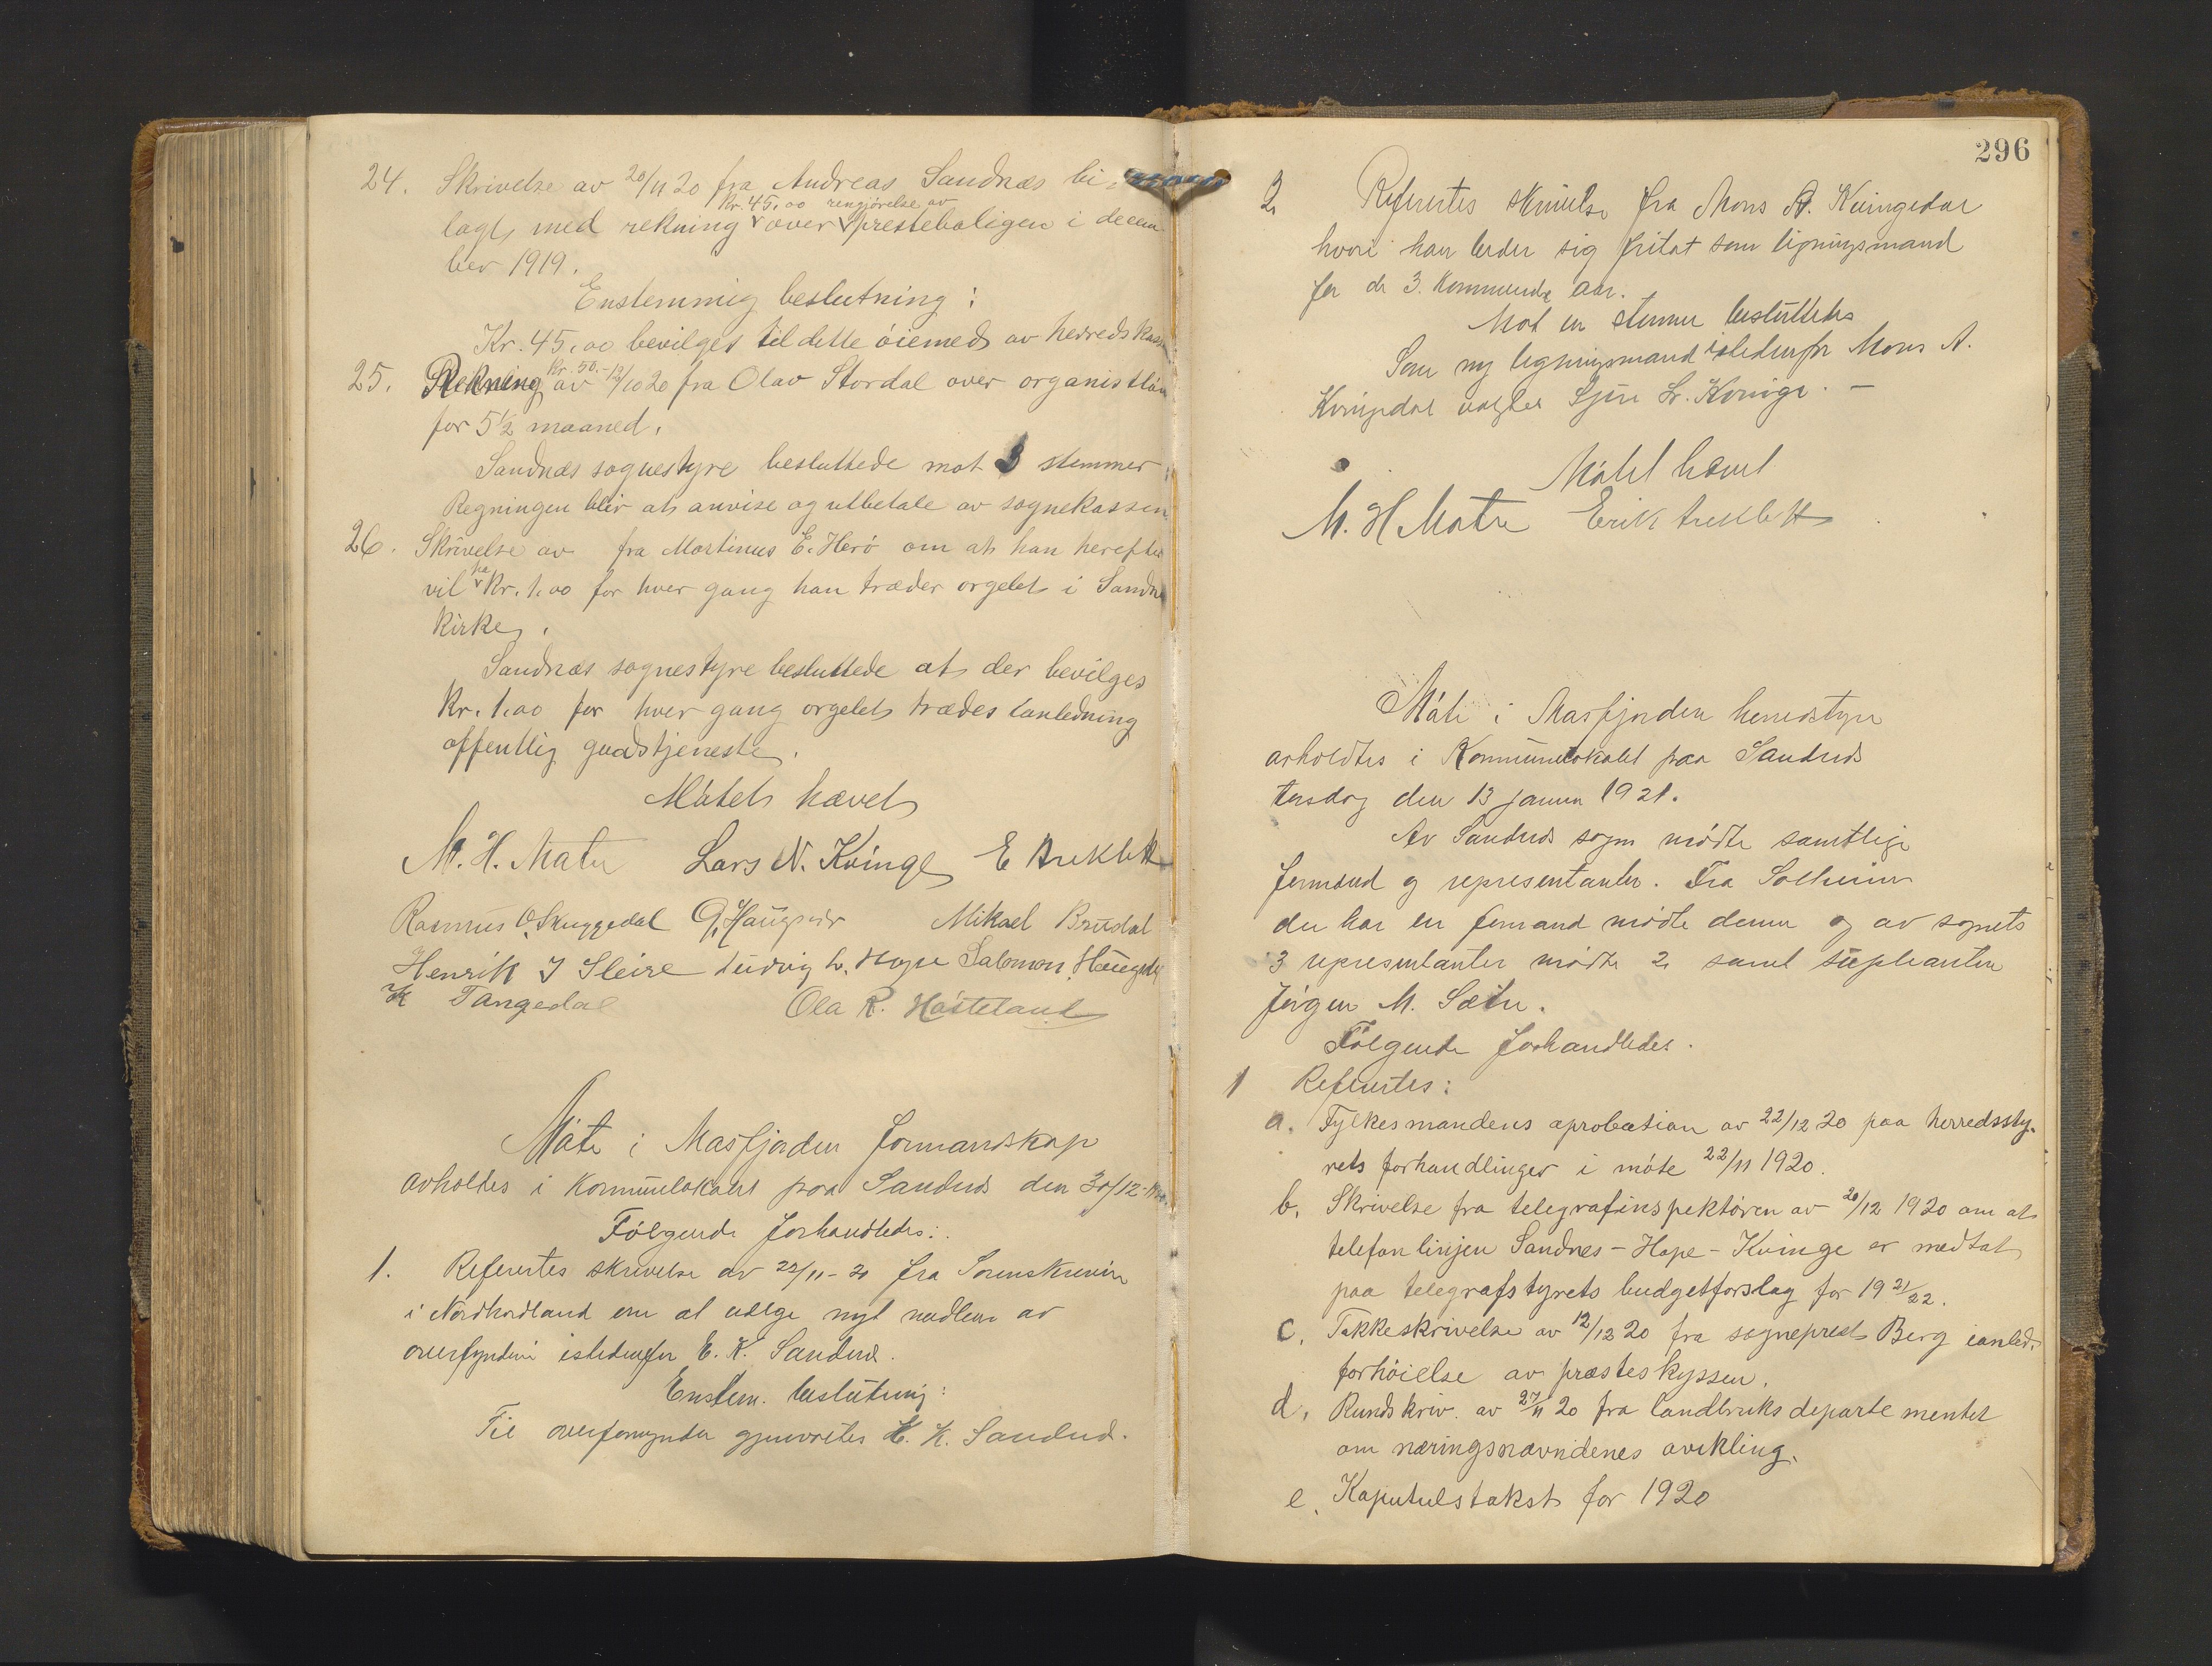 24. Skrivelse av 20/11 20 fra Andreas Sandnæs bi-
kr. 45,00 rengjørelse av
lagt med rekning over presteboligen i decem
ber 1919.
Enstemmig beslutning:
Kr. 45,00 bevilges til dette øiemed av herredskassen
kr. 50.-
25. Rekning av 13/10 20 fra Olav Stordal over organistløn
for 5½ maaned.
Sandnæs sognestyre besluttede mot 3 stemmer
Regningen blir at anvise og utbetale av sognekassen
26. Skrivelse av fra Martinus E. Herø om at han herefter
ha
vil kr. 1.00 for hver gang han træder orgelet i Sandnæs
kirke.
Sandnæs sognestyre besluttede at der bevilges
kr. 1.00 for hver gang orgelet trædes ianledning
offentlig gudstjeneste.
Møtet hævet
M. H. Matre Lars N. Kvinge E Trekløtt
Rasmus O. Skuggedal G. Haugsvær Mikael Brudal
Henrik J Sleire Ludvig L. Hope Salomon Haugsdal
K Tangedal Ola R. Høsteland
Møte i Masfjorden formandskap
avholdtes i kommunelokalet paa Sandnæs den 30/12-1920
Følgende forhandledes:
1. Refertes skrivelse av 22/11-20 fra Sorenskriveren
i Nordhordland om at vælge nyt medlem av
overformynderi istedenfor E. K. Sandnæs.
Enstem. beslutning:
Til overformynder gjenvalgtes E. K. Sandnæs.
296
2 Refertes skrivelse fra Mons A. Kvingedal
hvori han beder sig fritat som ligningsmand
for de 3. kommende aar.
Mot en stemme besluttedes
Som ny ligningsmand istedenfor Mons A.
Kvingedal valgtes Sjur L. Kvinge. -
Møtet hævet
M. H Matre Erik Trekløtt
Møte i Masfjorden herredstyre
avholdtes i Kommunelokalet paa Sandnæs
torsdag den 13 januar 1921.
Av Sandnæs sogn mødte samtlige
formænd og representanter. Fra Solheim
der har en formand mødte denne og av sognets
3 representanter mødte 2 samt supleanten
Jørgen M. Sætre.
Følgende forhandledes.
1 Refertes:
a. Fylkesmandens aprobation av 22/12 20 paa herredssty-
rets forhandlinger i møte 22/11 1920.
b. Skrivelse fra telegrafinspektøren av 20/12 1920 om at
telefonlinjen Sandnes - Hope - Kvinge er medtat
paa telegrafstyrets budgetforslag for 1921/22.
c. Takkeskrivelse av 12/12 20 fra sogneprest Berg ianled.
forhøielse av præsteskyssen.
d. Rundskriv. av 27/11 20 fra landbruksdepartementet
om næringsnævndenes avikling.
e. Kapitelstakst for 1920